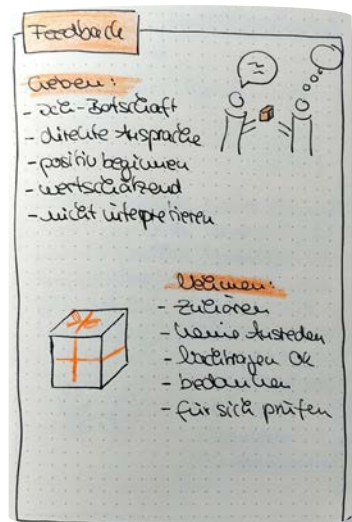 Feedback
Geben:
- Ich-Botschaft
- direkte Ansprache
- positiv beginnen
- wertschätzend
- nicht interpretieren
Nehmen:
- Zuhören
- keine Ausreden
- Nachfragen OK
- bedanken
- für sich prüfen